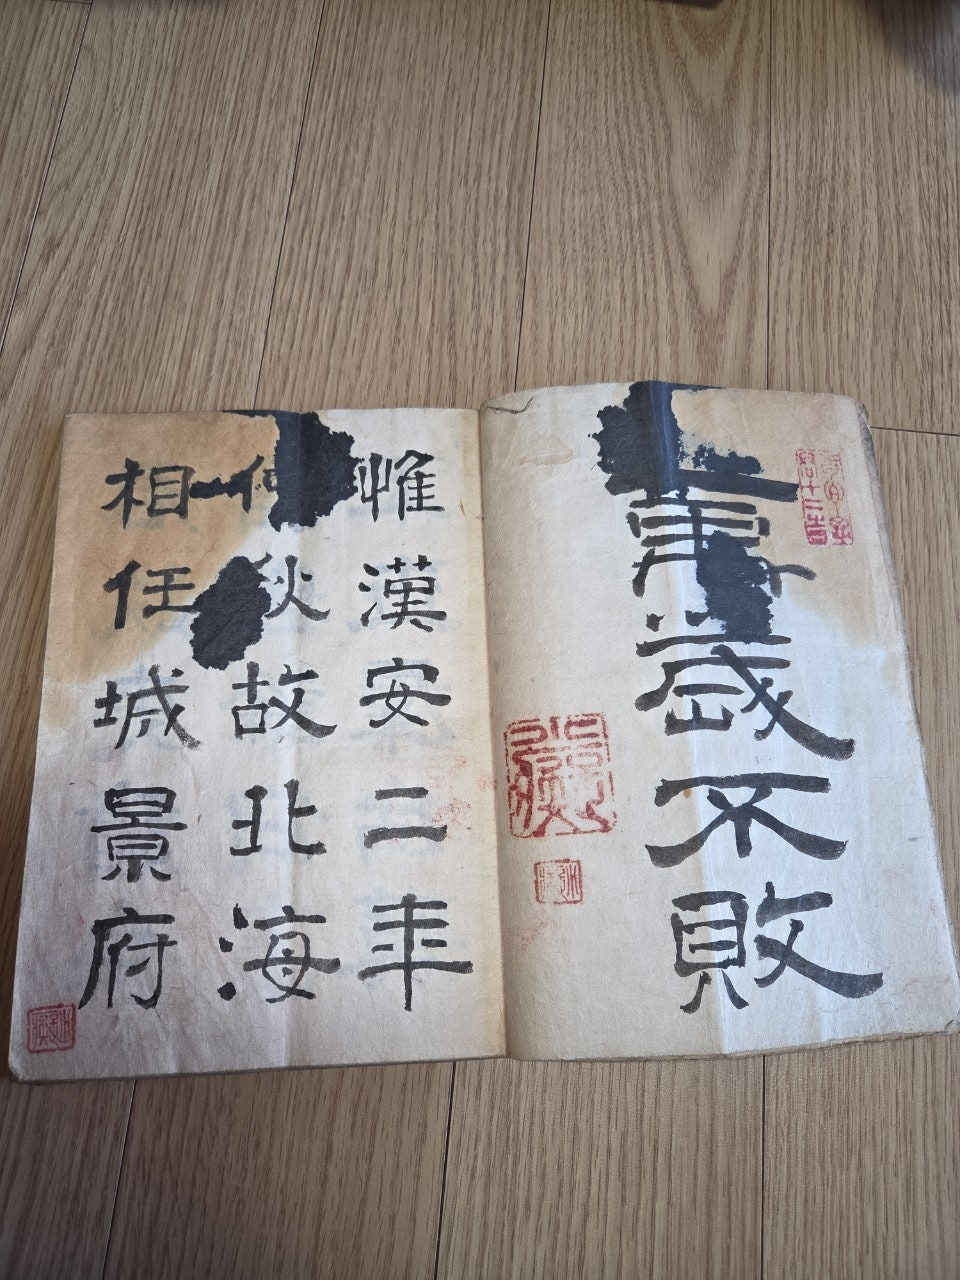 萬歲不敗
惟漢安二年
仲秋故北海
相任城景府